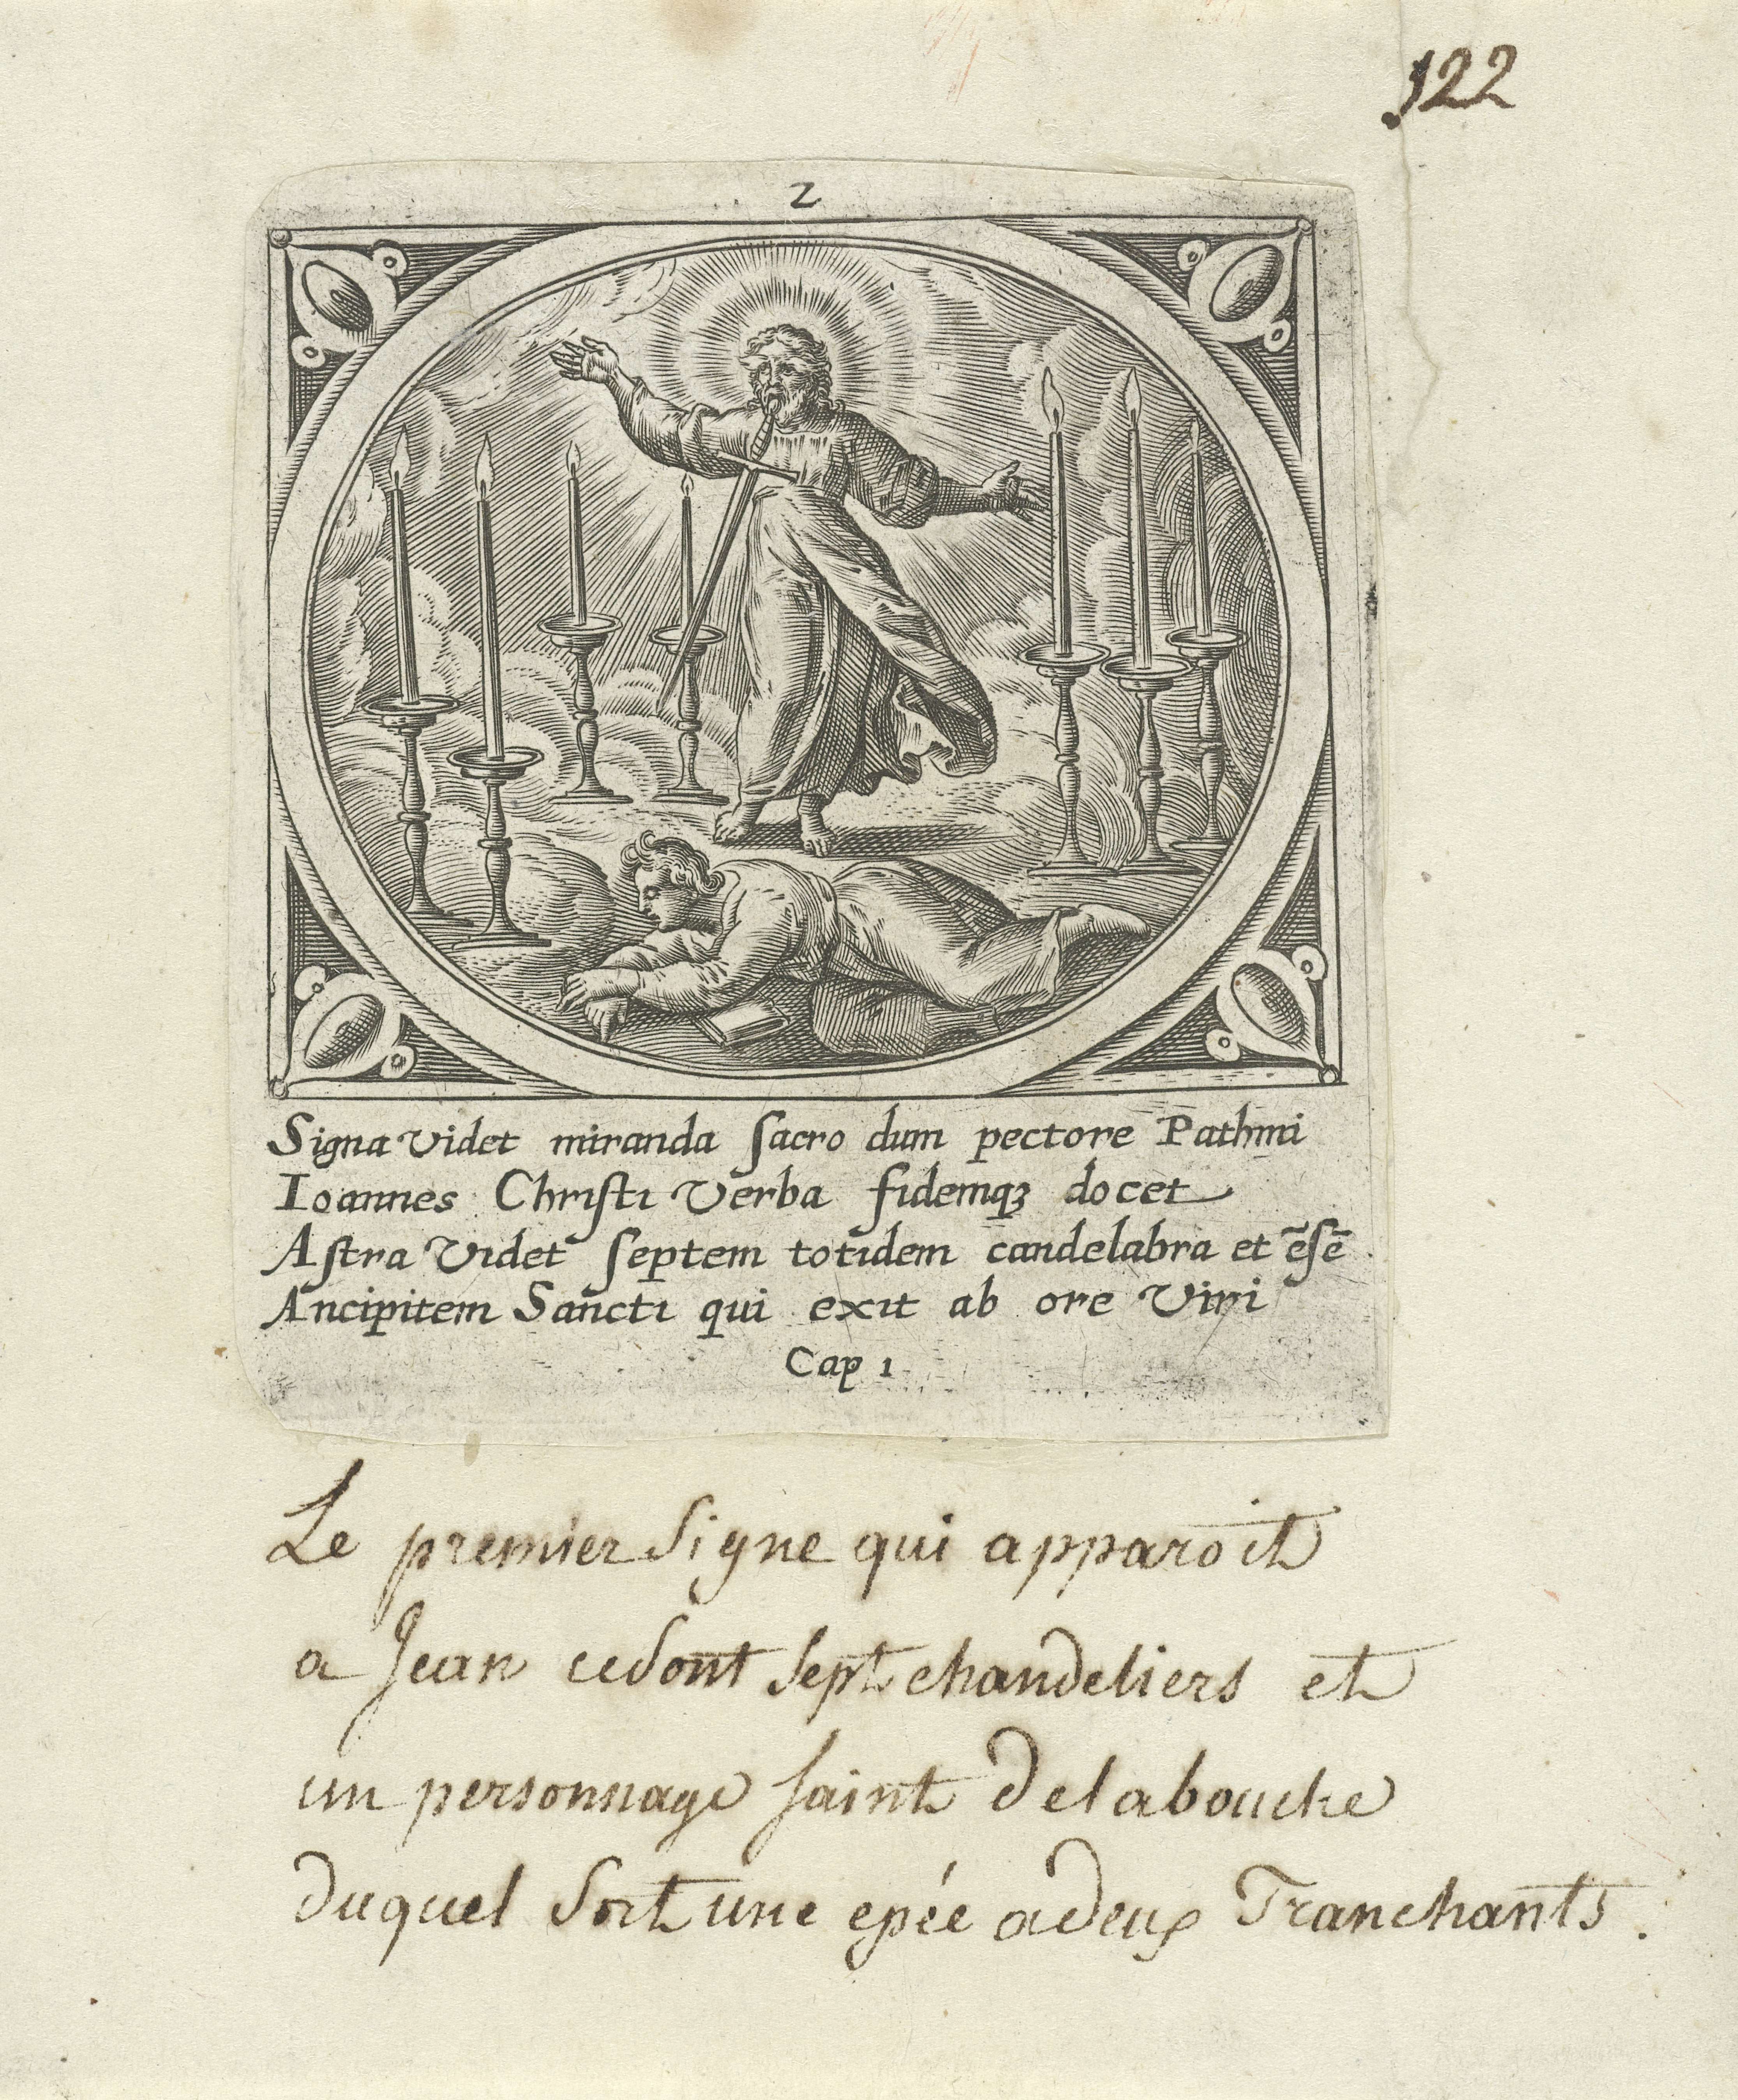 122
2
Signa videt miranda ſacro dum pectore Pathmi
Ioannes Chriſti verba fidemqꝫ docet
Aſtra videt ſeptem totidem candelabra et ēſē
Ancipitem Sancti qui exit ab ore viri
Cap 1
Le premier Signe qui apparoit
a Jean ce sont sept chandeliers et
un personnage saint de la bouche
duquel sort une epée a deux Tranchants.